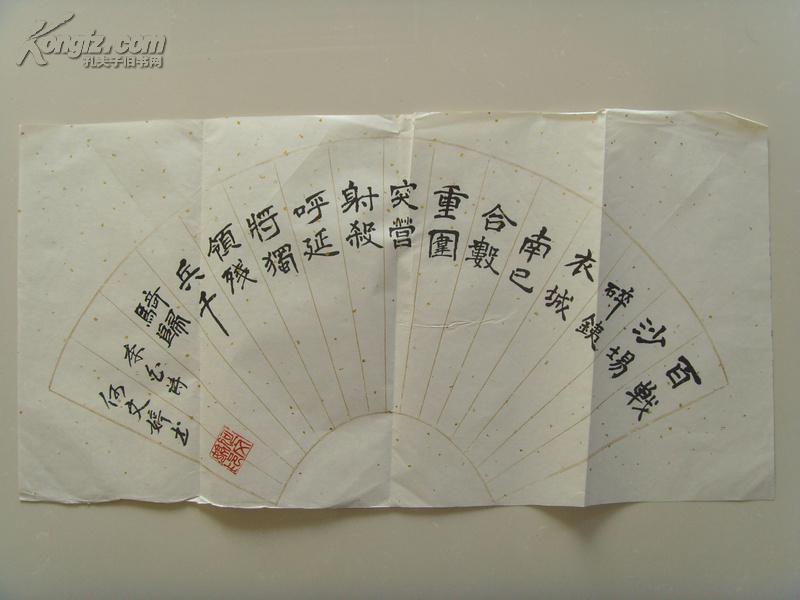 Kongfz.com
孔夫子旧书网
百戰
沙場
碎銕
衣城
南已
合數
重圍
突營
射殺
呼延
將獨
領殘
兵千
騎歸
李白詩
何文婷书